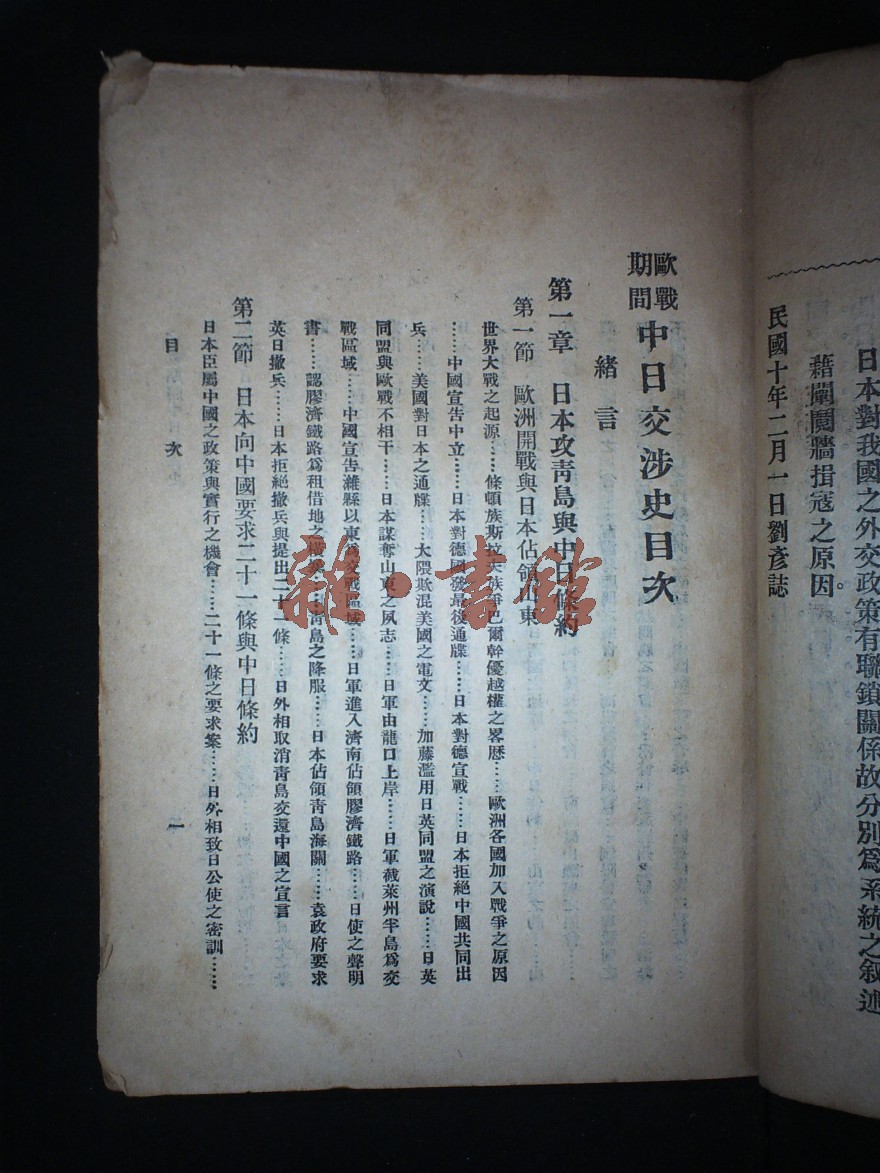 日本對我國之外交政策有聯鎖關係故分別爲系統之叙述
藉闡鬩牆揖寇之原因。
民國十年二月一日劉彥誌
歐戰期間中日交涉史目次
緒言
第一章 日本攻靑島與中日條約
第一節 歐洲開戰與日本佔領山東
世界大戰之起源……條頓族斯拉夫族爭巴爾幹優越權之畧歷……歐洲各國加入戰爭之原因
……中國宣告中立……日本對德國發最後通牒……日本對德宣戰……日本拒絕中國共同出
兵……美國對日本之通牒……大隈欺混美國之電文……加藤濫用日英同盟之演說……日英
同盟與歐戰不相干……日本謀奪山東之夙志……日軍由龍口上岸……日軍截萊州半島爲交
戰區域……中國宣告濰縣以東爲交戰區域……日軍進入濟南佔領膠濟鐵路……日使之聲明
書……認膠濟鐵路爲租借地之橫……靑島之降服……日本佔領靑島海關……袁政府要求
英日撤兵……日本拒絕撤兵與提出二十一條……日外相取消靑島交還中國之宣言
第二節 日本向中國要求二十一條與中日條約
日本臣屬中國之政策與實行之機會……二十一條之要求案……日外相致日公使之密訓……
目次 一
雜·書館